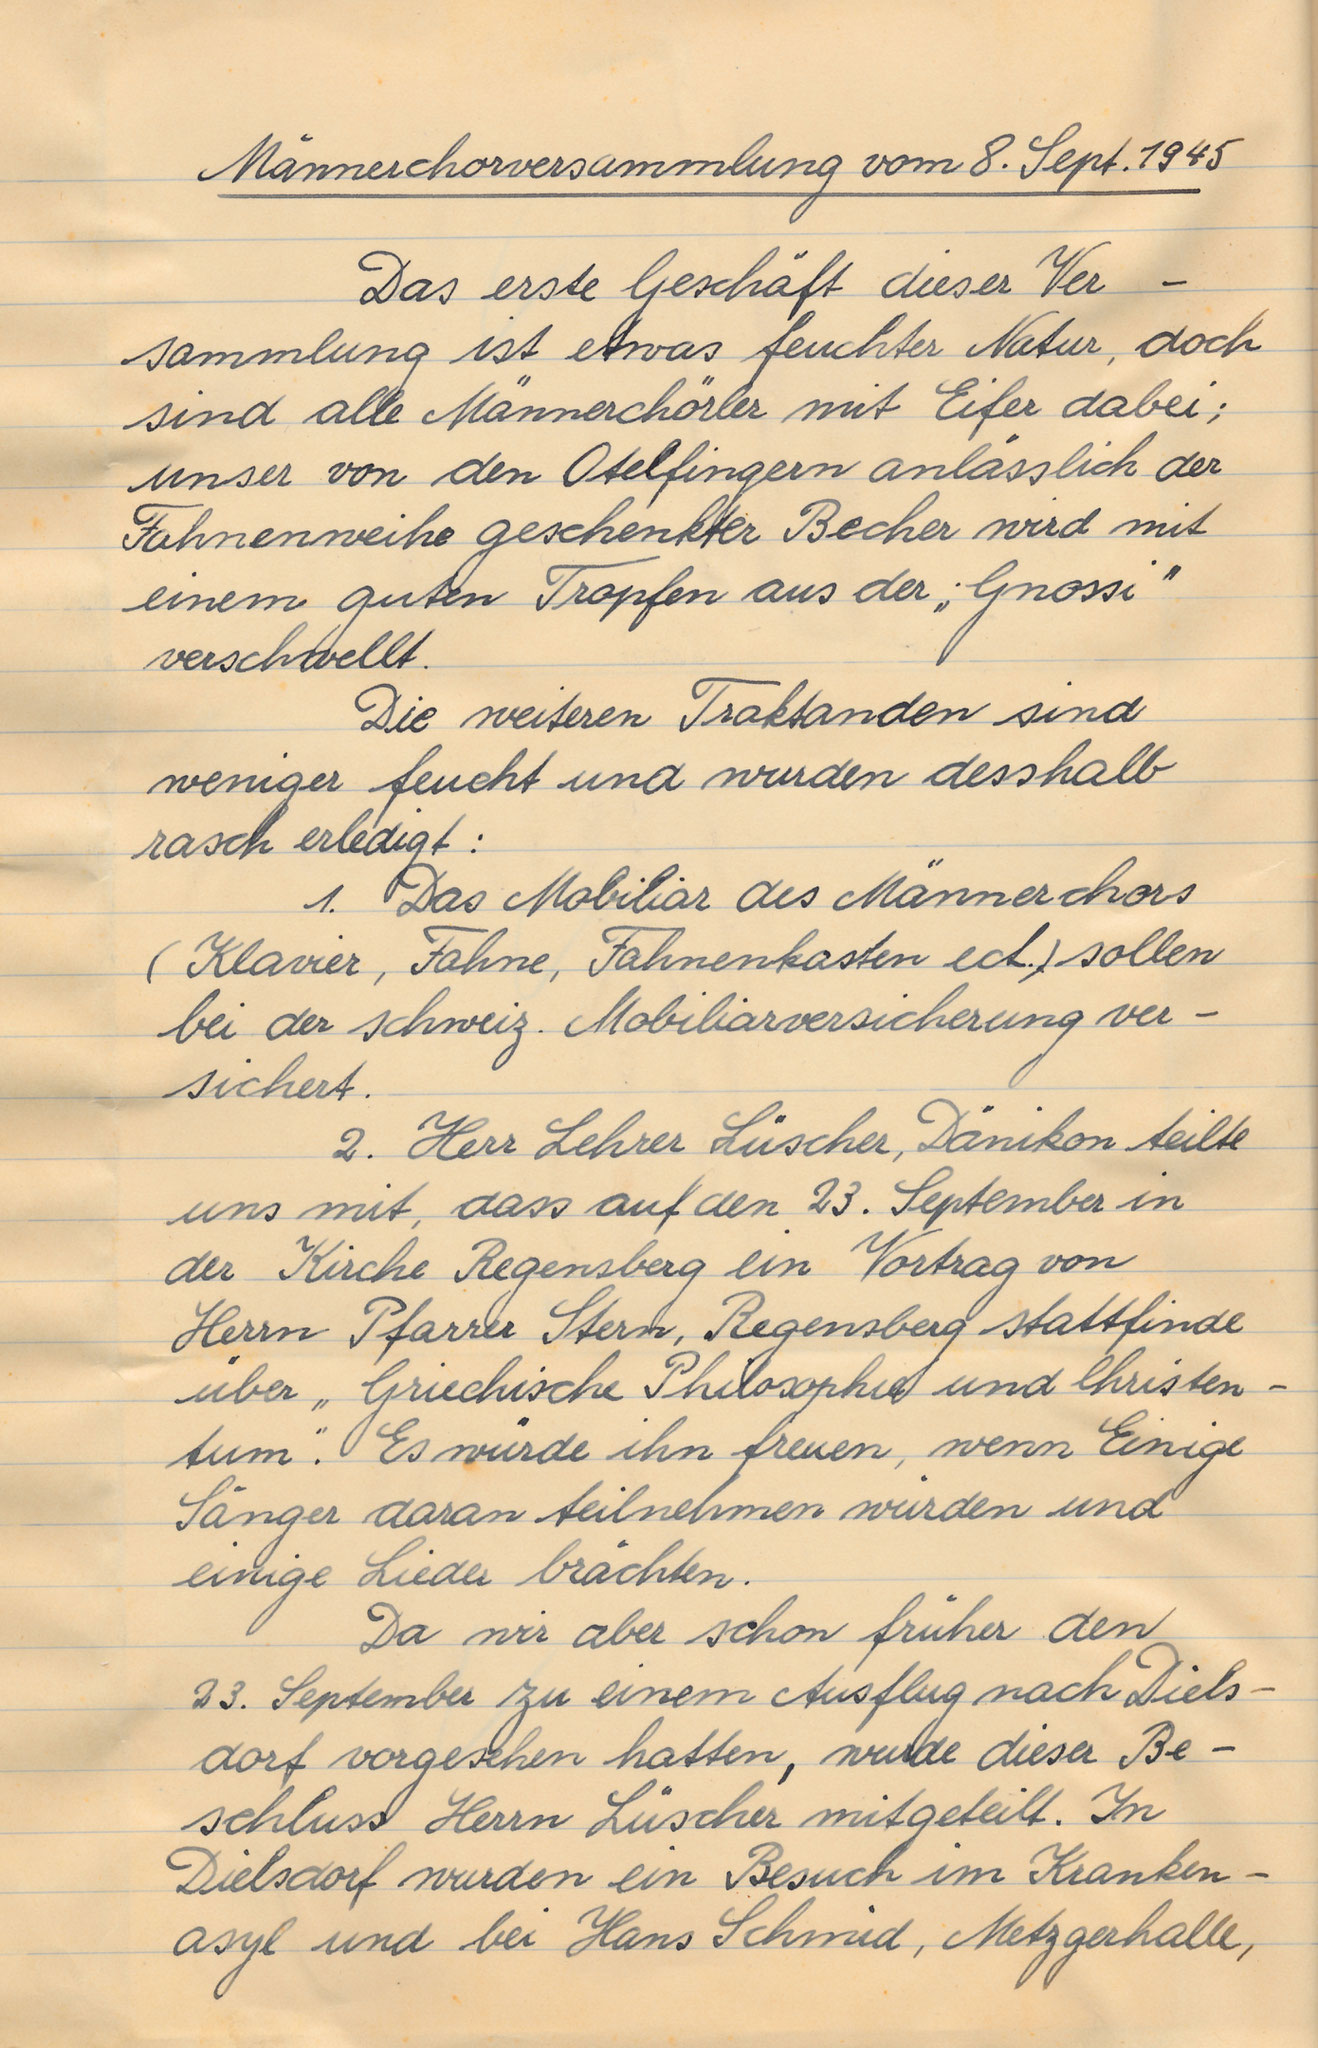 Männerchorversammlung vom 8. Sept. 1945
Das erste Geschäft dieser Ver -
sammlung ist etwas feuchter Natur, doch
sind alle Männerchörler mit Eifer dabei;
unser von den Otelfingern anlässlich der
Fahnenweihe geschenkter Becher wird mit
einem guten Tropfen aus der „Gnossi"
verschwellt.
Die weiteren Traktanden sind
weniger feucht und wurden desshalb
rasch erledigt :
1. Das Mobiliar des Männerchors
(Klavier, Fahne, Fahnenkasten ect.) sollen
bei der schweiz. Mobiliarversicherung ver -
sichert.
2. Herr Lehrer Lüscher, Dänikon teilte
uns mit, dass auf den 23. September in
der Kirche Regensberg ein Vortrag von
Herrn Pfarrer Stern, Regensberg stattfinde
über „Griechische Philosophie und Christen -
tum". Es würde ihn freuen, wenn Einige
Sänger daran teilnehmen würden und
einige Lieder brächten.
Da wir aber schon früher den
23. September zu einem Ausflug nach Diels -
dorf vorgesehen hatten, wurde dieser Be -
schluss Herrn Lüscher mitgeteilt. In
Dielsdorf wurden ein Besuch im Kranken -
asyl und bei Hans Schmid, Metzgerhalle,